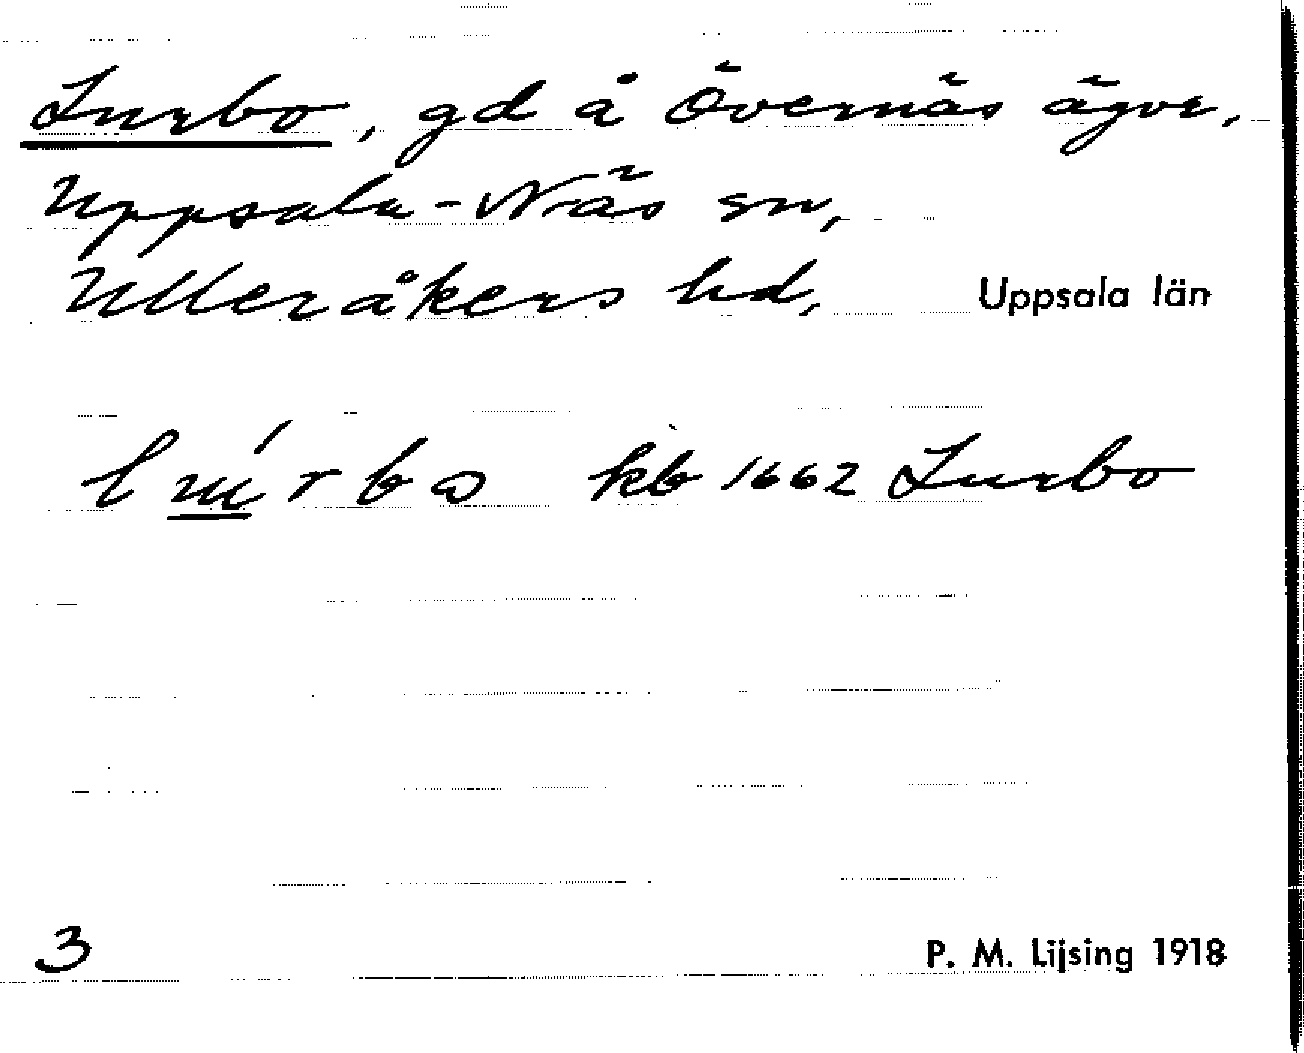 Lurbo, gd å Övernäs ägor,
Uppsala-Näs sn,
Ulleråkers hd, Uppsala län
kb 1662 Lurbo
3
P. M. Lijsing 1918